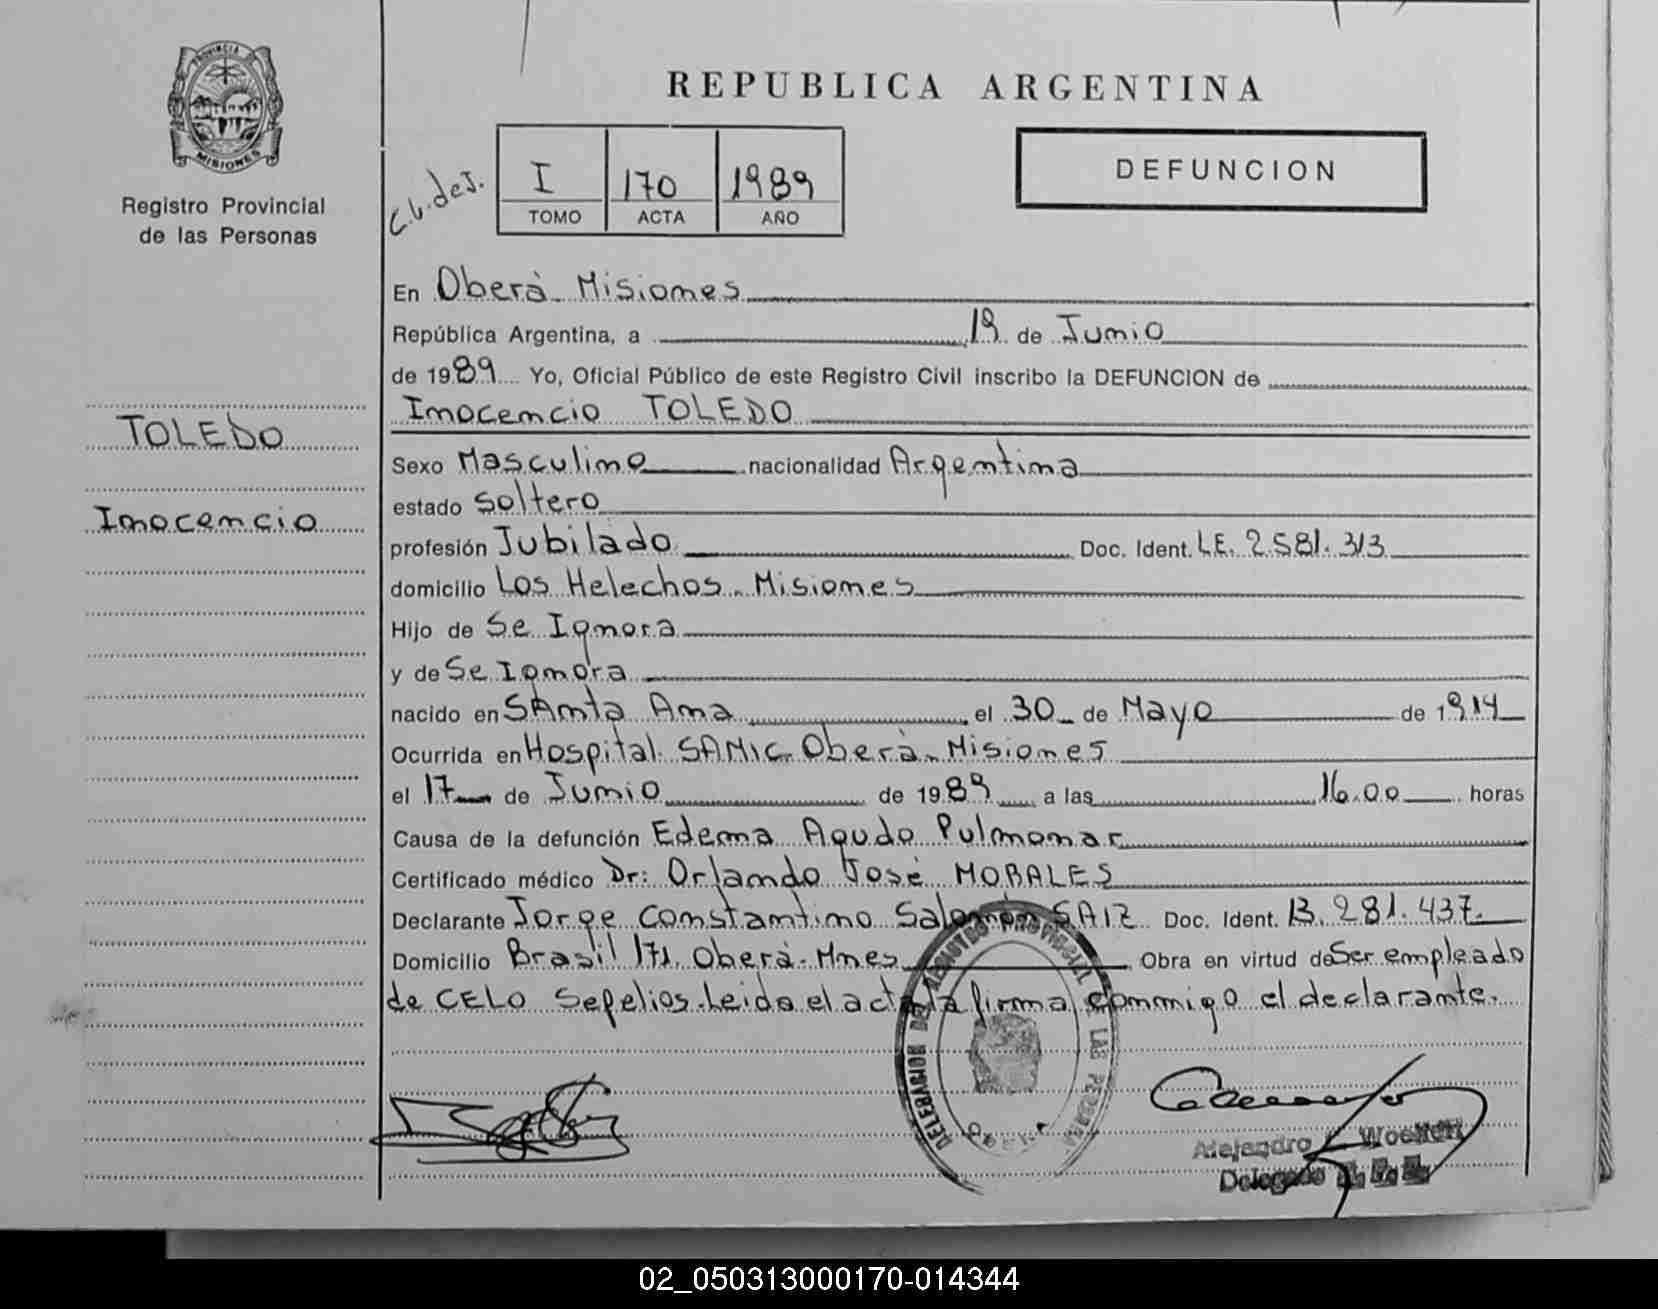 PROVINCIA DE
MISIONES
Registro Provincial
de las Personas
TOLEDO
Inocencio
REPUBLICA ARGENTINA
C.b. de J.
I 170 1989
TOMO ACTA AÑO
DEFUNCION
En Oberà Misiones
República Argentina, a 19 de Junio
de 1989 Yo, Oficial Público de este Registro Civil inscribo la DEFUNCION de
Inocencio TOLEDO
Sexo Masculino nacionalidad Argentina
estado Soltero
profesión Jubilado Doc. Ident. L.E. 2.581.313
domicilio Los Helechos - Misiones
Hijo de Se Ignora
y de Se Ignora
nacido en SAnta Ana el 30 de Mayo de 1914
Ocurrida en Hospital SAMIC Oberà - Misiones
el 17 de Junio de 1989 a las 16.00 horas
Causa de la defunción Edema Agudo Pulmonar
Certificado médico Dr: Orlando José MORALES
Declarante Jorge Constantino Salomón SAIZ Doc. Ident. 13.281.437.
Domicilio Brasil 171. Oberà - Mnes Obra en virtud de Ser empleado
de CELO Sepelios. Leida el acta la firma conmigo el declarante.
DELEGACION DEL REGISTRO PROVINCIAL DE LAS PERSONAS
OBERA
Alejandro
Delegado
02_050313000170-014344